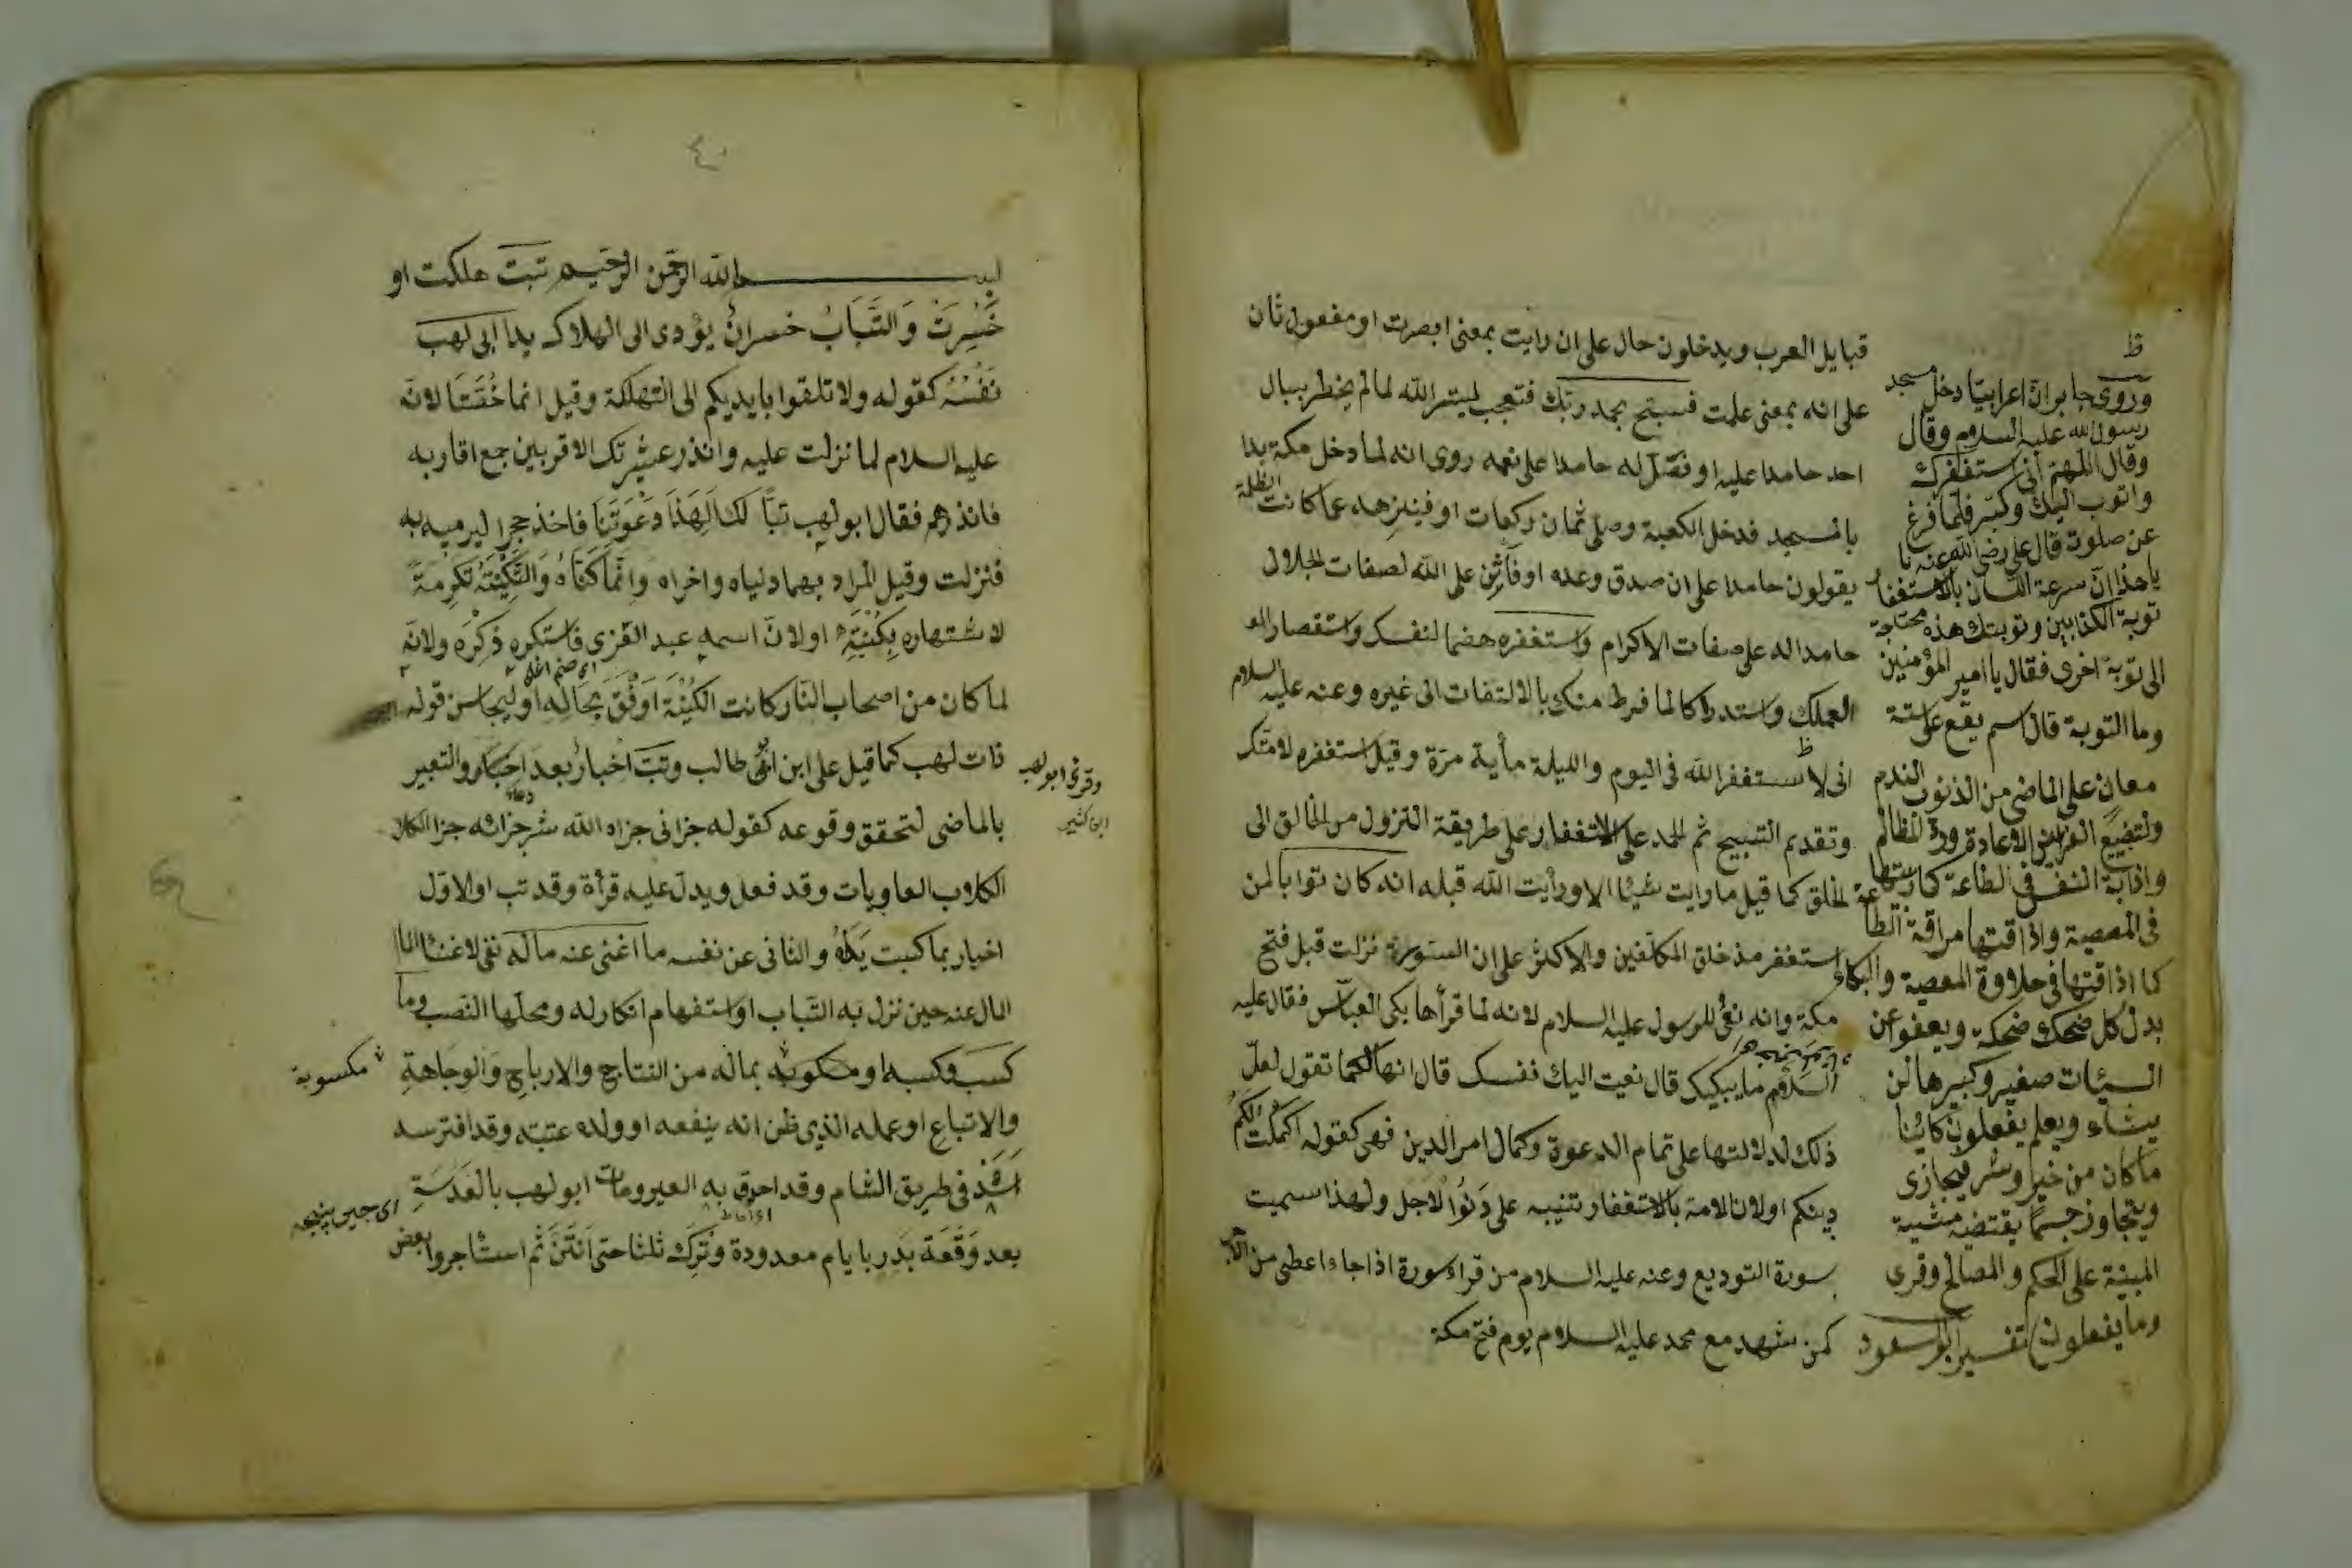 قبايل العرب ويدخلون حال على ان رايت بمعنى ابصرت او مفعول ثان
على انه بمعنى علمت فسبح بحمد ربك فتعجب لتيسر الله لما لم يخطر ببال
احد حامدا عليه او فصل له حامدا على نعمه روى انه لما دخل مكة بدا
بالمسجد فدخل الكعبة وصلى ثمان ركعات او فينزهه عما كانت الظلمة
يقولون حامدا على ان صدق وعده او فأثن على الله لصفات الجلال
حامدا له على صفات الاكرام واستغفره هضما لنفسك واستقصارا
لعملك واستدراكا لما فرط منك بالالتفات الى غيره وعنه عليه السلام
انى لاستغفر الله فى اليوم والليلة مأية مرة وقيل استغفره لامتك
وتقديم التسبيح ثم الحمد على الاستغفار على طريقة النزول من الخالق الى
الخلق كما قيل ما رايت شيئا الا ورأيت الله قبله انه كان توابا لمن
استغفر مذ خلق المكلفين والاكثر على ان السورة نزلت قبل فتح
مكة وانه نعى للرسول عليه السلام لانه لما قرأها بكى العباس فقال عليه
السلام ما يبكيك قال نعيت اليك نفسك قال انها لكما تقول لعل
ذلك لدلالتها على تمام الدعوة وكمال امر الدين فهى كقوله اكملت لكم
دينكم او لان الامة بالاستغفار تنبيه على دنو الاجل ولهذا سميت
سورة التوديع وعنه عليه السلام من قراء سورة اذا جاء اعطى من الاجر
كمن شهد مع محمد عليه السلام يوم فتح مكة
وروى جابر ان اعرابيا دخل مسجد
رسول الله عليه السلام وقال
وقال اللهم انى استغفرك
واتوب اليك وكبر فلما فرغ
عن صلوته قال على رضى الله عنه يا
يا هذا ان سرعة اللسان بالاستغفار
توبة الكذابين وتوبتك هذه محتاجة
الى توبة اخرى فقال يا امير المؤمنين
وما التوبة قال اسم يقع على ستة
معان على الماضى من الذنوب الندم
ولتضييع الفرايض الاعادة ورد المظالم
واذابة النفس فى الطاعة كما ربيتها
فى المعصية واذاقتها مرارة الطاعة
كما اذاقتها فى حلاوة المعصية والبكاء
بدل كل ضحك ضحكة ويعفو عن
السيئات صغير وكبيرها لمن
يشاء ويعلم يفعلون كائنا
ما كان من خير وشر فيجازى
ويتجاوز حسبما يقتضيه مشية
المبنية على الحكم والمصالح وقرى
وما يفعلون تفسير ابو السعود
بسم الله الرحمن الرحيم تبت هلكت او
خسرت والتباب خسران يؤدى الى الهلاك يدا ابى لهب
نفسه كقوله ولا تلقوا بايديكم الى التهلكة وقيل انما خصتا لانه
عليه السلام لما نزلت عليه وانذر عشيرتك الاقربين جمع اقاربه
فانذرهم فقال ابو لهب تبا لك الهذا دعوتنا فاخذ حجرا ليرميه به
فنزلت وقيل المراد بهما دنياه واخراه وانما كناه والتكنية تكرمة
لاشتهاره بكنيته او لان اسمه عبد العزى فاستكره ذكره ولانه
لما كان من اصحاب النار كانت الكنية اوفق بحاله او ليجانس قوله
ذات لهب كما قيل على ابن ابى طالب وتب اخبار بعد اخبار والتعبير
بالماضى لتحقق وقوعه كقوله جزانى جزاه الله شر جزائه جزا الكلا
الكلاب العاويات وقد فعل ويدل عليه قرأة وقد تب او الاول
اخبار بما كسبت يداه والثانى عن نفسه ما اغنى عنه ماله نفى لاغناء المال
المال عنه حين نزل به التباب او استفهام انكار له ومحلها النصب وما
كسب وكسبه او مكسوبه بماله من النتايج والارباح والوجاهة
والاتباع او عمله الذى ظن انه ينفعه او ولده عتبة وقد افترسه
اسد فى طريق الشام وقد احدق به العير ومات ابو لهب بالعدسة
بعد وقعة بدر بايام معدودة وترك ثلثا حتى انتن ثم استأجروا بعض
وقرئ ابو لهب
ابن كثير
مكسوبة